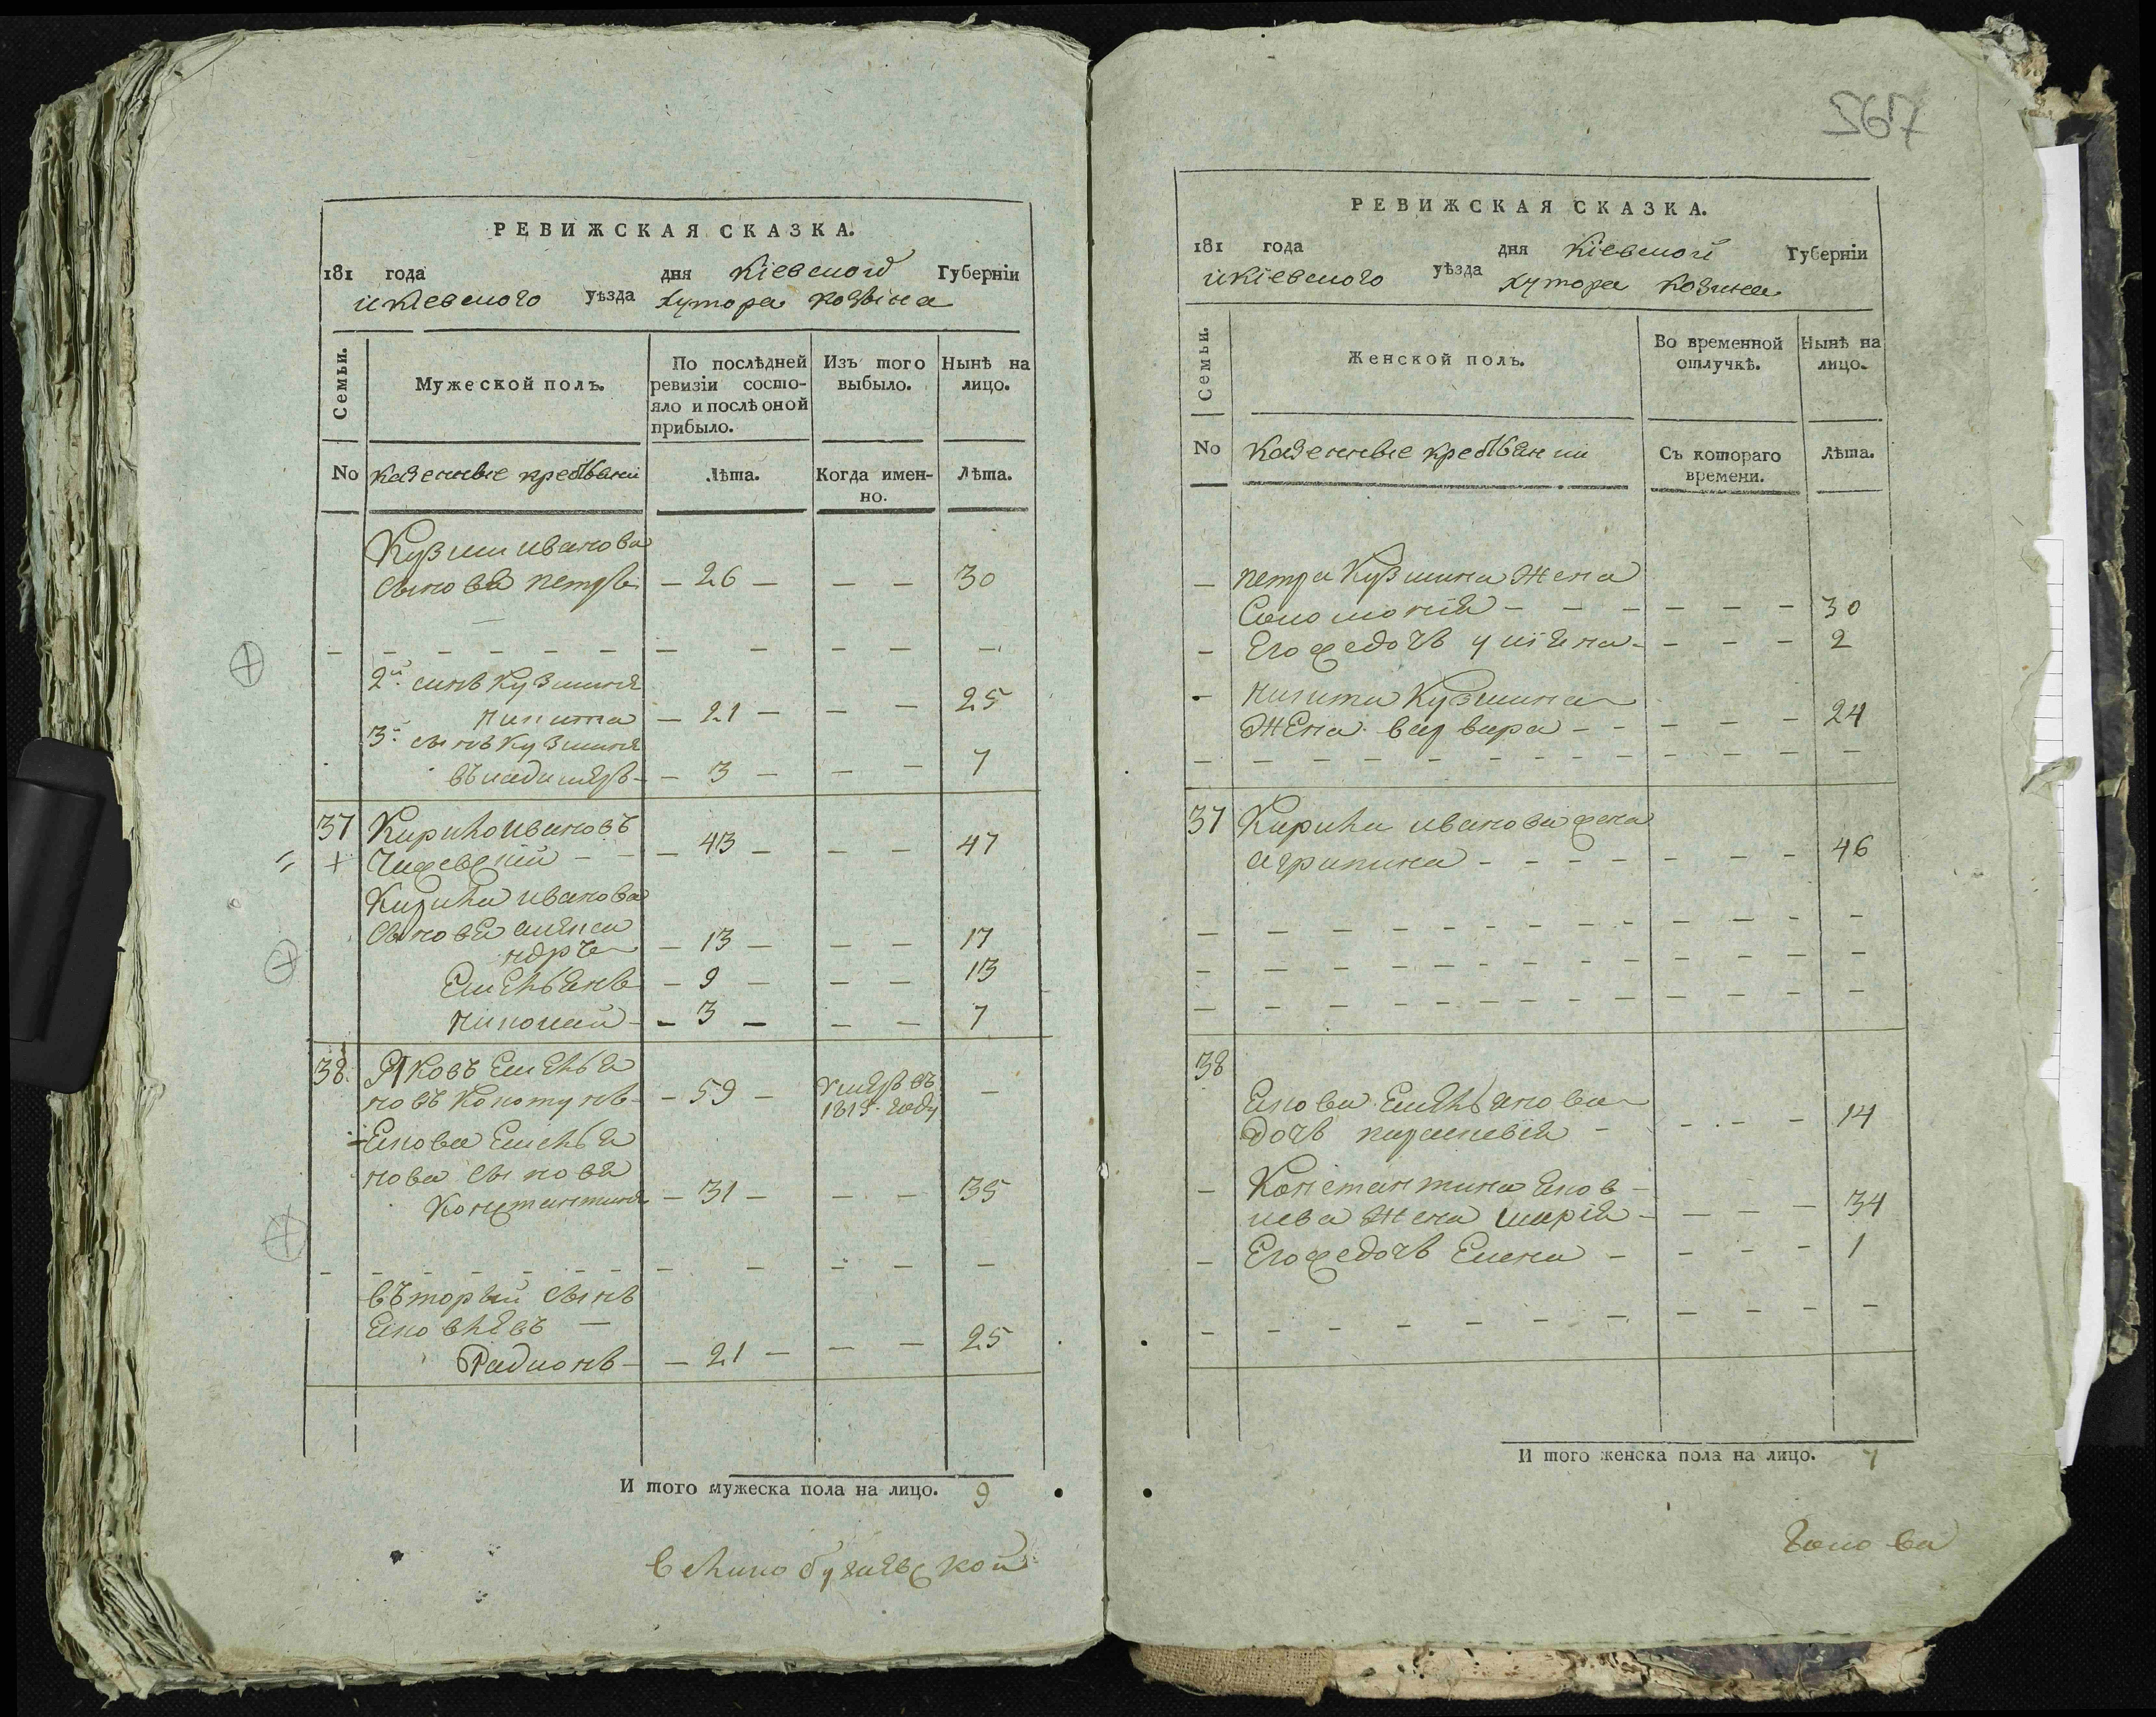 РЕВИЖСКАЯ СКАЗКА.
181 года дня Кіевской Губерніи
и Кіевского уѣзда хутора Козина
Семьи.
Мужеской полъ.
По послѣдней ревизіи состояло и послѣ оной прибыло.
Изъ того выбыло.
Нынѣ на лицо.
No казенные крестьяни
Лѣта.
Когда именно.
Лѣта.
Кузми иванова
сынове петръ — 26 — — — 30
2й сынъ Кузминъ
никита — 21 — — — 25
3й сынъ Кузминъ
въладимеръ — 3 — — — 7
37 Кирило ивановъ
— 43 — — — 47
Кирила иванова
сынове алекса
ндръ — 13 — — — 17
Емельянъ — 9 — — — 13
николай — 3 — — — 7
38. Яковъ Емелья
новъ Колтунъ — 59 — умеръ въ 1815 году —
Якова Емелья
нова сынове
Константинъ — 31 — — — 35
въторый сынъ
Яковлевъ —
Радионъ — 21 — — — 25
И того мужеска пола на лицо. 9
267
РЕВИЖСКАЯ СКАЗКА.
181 года дня Кіевской Губерніи
и Кіевского уѣзда хутора Козина
Семьи.
Женской полъ.
Во временной отлучкѣ.
Нынѣ на лицо.
No казенные крестьянки
Съ котораго времени.
Лѣта.
— петра Кузмина жена
Соломонія — — — 30
— Его же дочь уліяна — — — 2
— никити Кузмина
жена варвара — — — 24
37 Кирила иванова жена
агрипина — — — 46
38
Якова Емельянова
дочь параскевія — — — 14
— Константина Яков
лева жена марія — — — 34
— Его же дочь Елена — — — 1
И того женска пола на лицо. 7
Голова